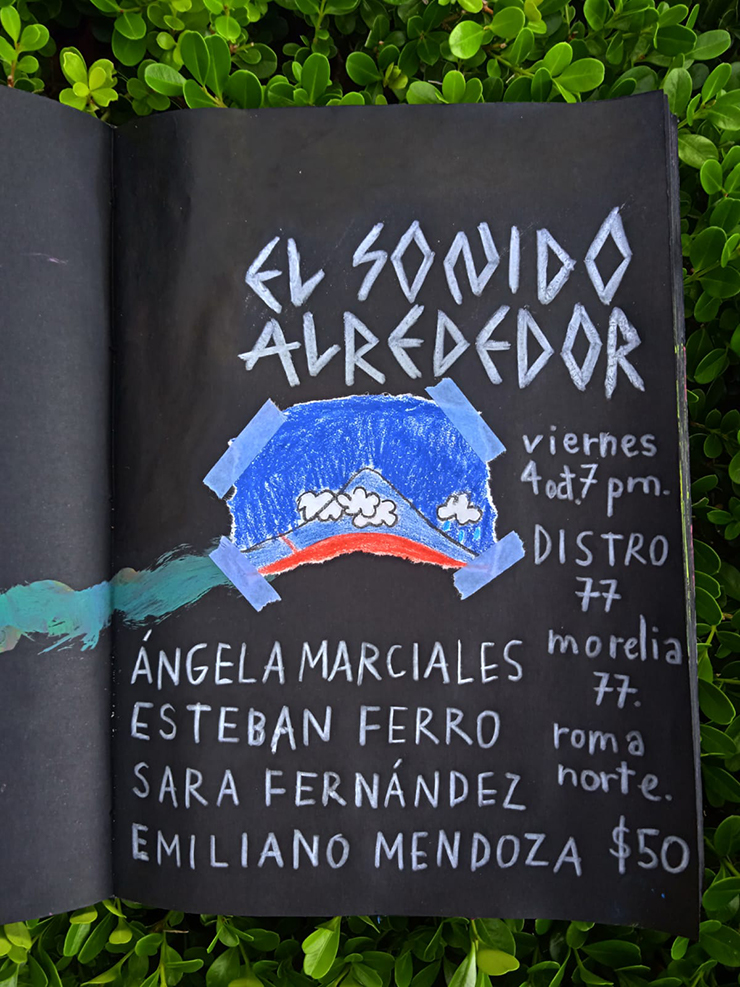 EL SONIDO
ALREDEDOR
viernes
4 oct. 7 pm.
DISTRO
77
morelia
77.
roma
norte.
$50
ÁNGELA MARCIALES
ESTEBAN FERRO
SARA FERNÁNDEZ
EMILIANO MENDOZA